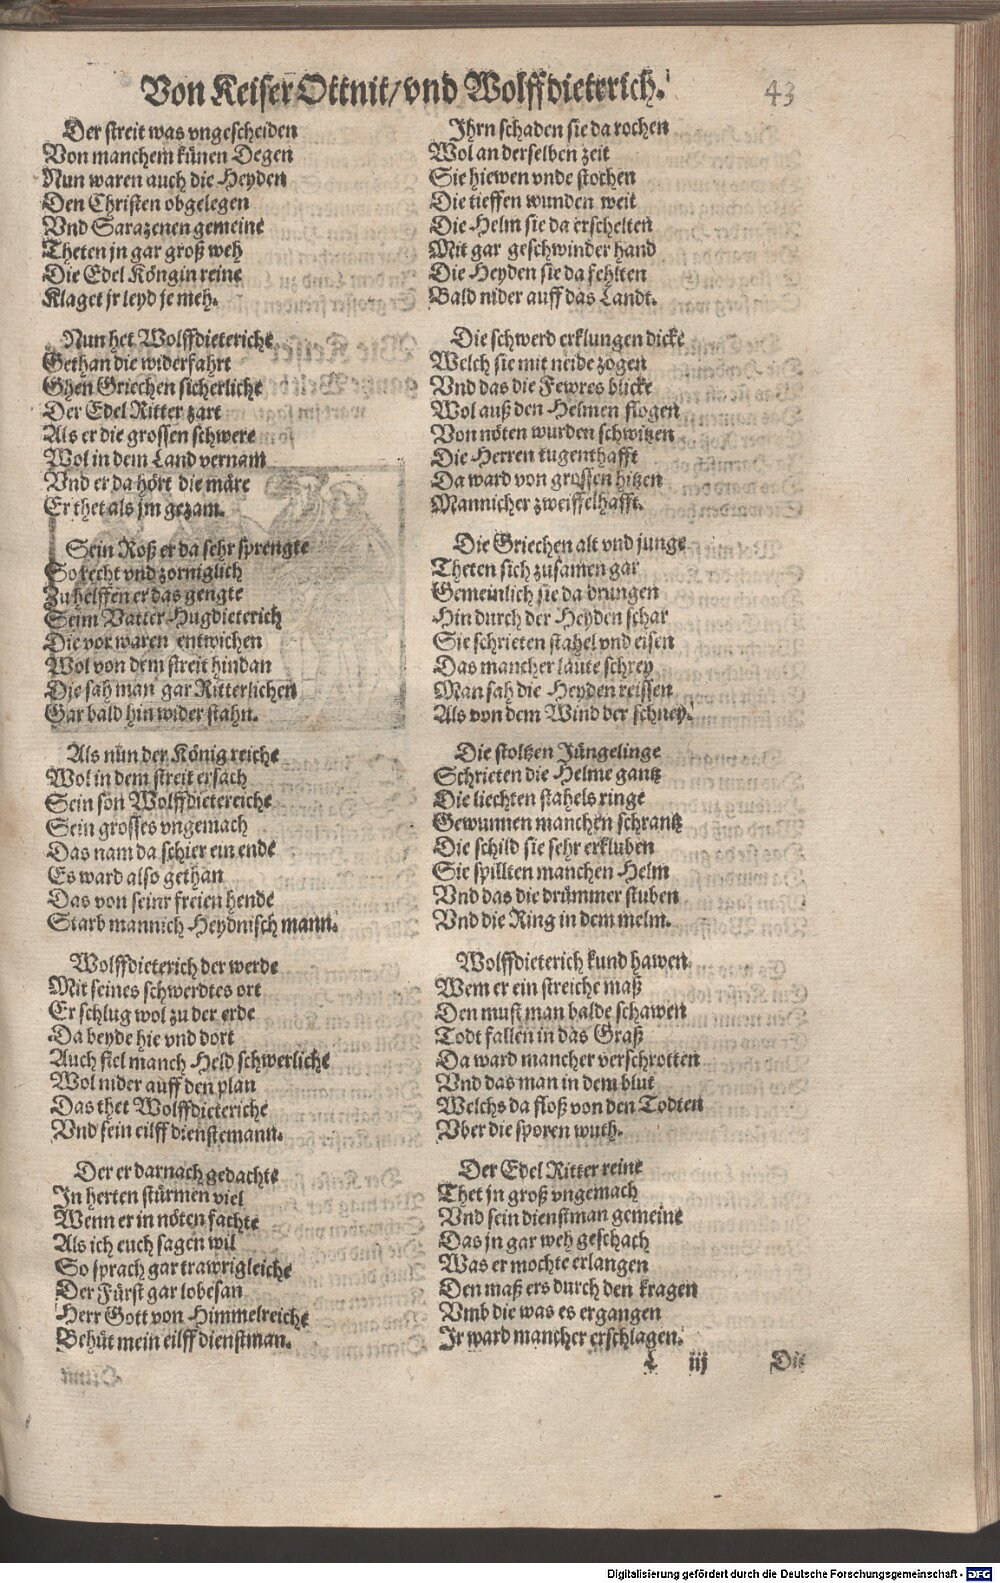 Von Keiser Ottnit/ vnd Wolffdieterich.
43
Der streit was vngescheiden
Von manchem künen Degen
Nun waren auch die Heyden
Den Christen obgelegen
Vnd Sarazenen gemeine
Theten jn gar groß weh
Die Edel Köngin reine
Klaget jr leyd je meh.
Nun het Wolffdieteriche
Gethan die widerfahrt
Ghen Griechen sicherliche
Der Edel Ritter zart
Als er die grossen schwere
Wol in dem Land vernam
Vnd er da hört die märe
Er thet als jm gezam.
Sein Roß er da sehr sprengte
So recht vnd zorniglich
Zu helffen er das gengte
Seim Vatter Hugdieterich
Die vor waren entwichen
Wol von dem streit hindan
Die sah man gar Ritterlichen
Gar bald hin wider stahn.
Als nün der König reiche
Wol in dem streit ersach
Sein son Wolffdietereiche
Sein grosses vngemach
Das nam da schier ein ende
Es ward also gethan
Das von seinr freien hende
Starb mannich Heydnisch mann.
Wolffdieterich der werde
Mit seines schwerdtes ort
Er schlug wol zu der erde
Da beyde hie vnd dort
Auch fiel manch Held schwerliche
Wol nider auff den plan
Das thet Wolffdieteriche
Vnd sein eilff dienstemann.
Der er darnach gedachte
In herten stürmen viel
Wenn er in nöten fachte
Als ich euch sagen wil
So sprach gar trawrigleiche
Der Fürst gar lobesan
Herr Gott von Himmelreiche
Behüt mein eilff dienstman.
Ihrn schaden sie da rochen
Wol an derselben zeit
Sie hiewen vnde stochen
Die tieffen wunden weit
Die Helm sie da erschelten
Mit gar geschwinder hand
Die Heyden sie da fehlten
Bald nider auff das Landt.
Die schwerd erklungen dicke
Welch sie mit neide zogen
Vnd das die Fewres blicke
Wol auß den Helmen flogen
Von nöten wurden schwitzen
Die Herren tugenthafft
Da ward von grossen hitzen
Mannicher zweiffelhafft.
Die Griechen alt vnd junge
Theten sich zusamen gar
Gemeinlich sie da drungen
Hin durch der Heyden schar
Sie schrieten stahel vnd eisen
Das mancher laute schrey
Man sah die Heyden reissen
Als von dem Wind der schney.
Die stoltzen Jüngelinge
Schrieten die Helme gantz
Die liechten stahels ringe
Gewunnen manchen schrantz
Die schild sie sehr erkluben
Sie spillten manchen Helm
Vnd das die drümmer stuben
Vnd die Ring in dem melm.
Wolffdieterich kund hawen
Wem er ein streiche maß
Den must man balde schawen
Todt fallen in das Graß
Da ward mancher verschrotten
Vnd das man in dem blut
Welchs da floß von den Todten
Vber die sporen wuth.
Der Edel Ritter reine
Thet jn groß vngemach
Vnd sein dienstman gemeine
Das jn gar weh geschach
Was er mochte erlangen
Den maß ers durch den kragen
Vmb die was es ergangen
Ir ward mancher erschlagen.
L iij Die
Digitalisierung gefördert durch die Deutsche Forschungsgemeinschaft - DFG